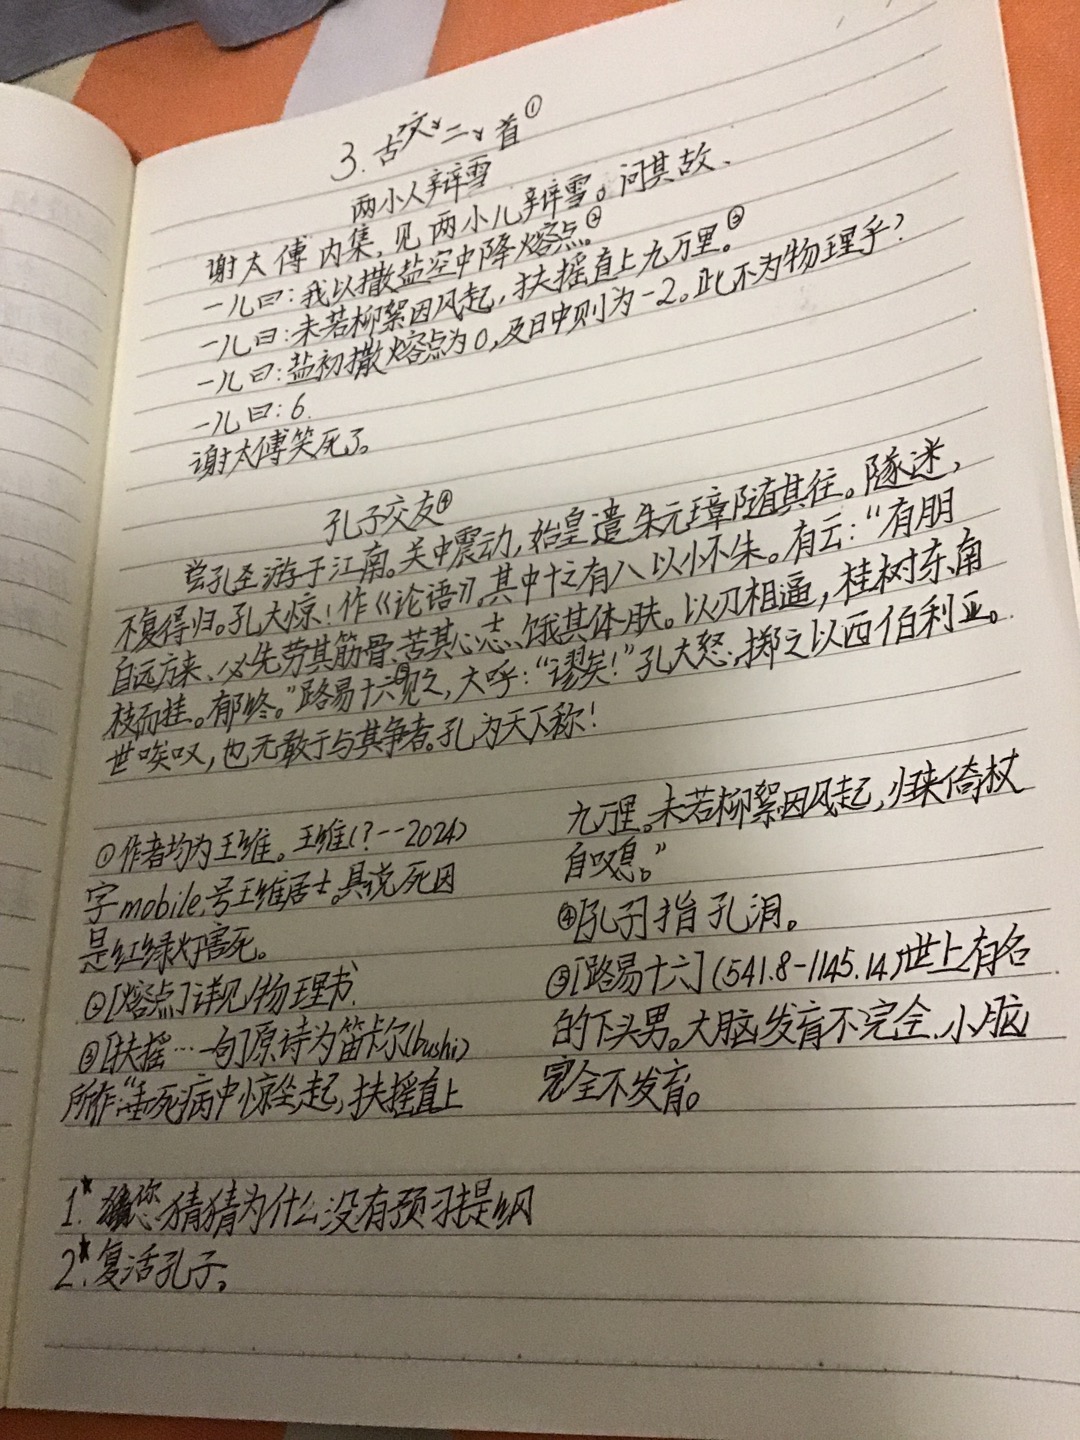 3. 古文二首①
两小人辩雪
谢太傅内集,见两小儿辩雪。问其故、
一儿曰:我以撒盐空中降熔点。②
一儿曰:未若柳絮因风起,扶摇直上九万里。③
一儿曰:盐初撒熔点为0,及日中则为-2。此不为物理乎?
一儿曰:6.
谢太傅笑死了。
孔子交友④
尝孔圣游于江南。关中震动,始皇遣朱元璋随其往。隧迷,
不复得归。孔大惊!作《论语》。其中十之有八以小不朱。有云:“有朋
自远方来、必先劳其筋骨、苦其心志、饿其体肤。以刃相逼,桂树东南
枝而挂。有郁终。”路易十六⑤见之,大呼:“谬矣!”孔大怒,掷之以西伯利亚。
世唉叹,也无敢于与其争者。孔为天下称!
①作者均为王维。王维(?--2024)
字mobile,号王维居士。具说死因
是红绿灯害死。
②[熔点]详见物理书、
③[扶摇…一句]原诗为笛卡尔(bushi)
所作:“垂死病中惊坐起,扶摇直上
九万里。未若柳絮因风起,归来倚杖
自叹息。”
④[孔子]指孔泪。
⑤[路易十六](541.8-1145.14)世上有名
的下头男。大脑发育不完全、小脑
完全不发育。
1.* 您猜猜为什么没有预习提纲
2.* 复活孔子。